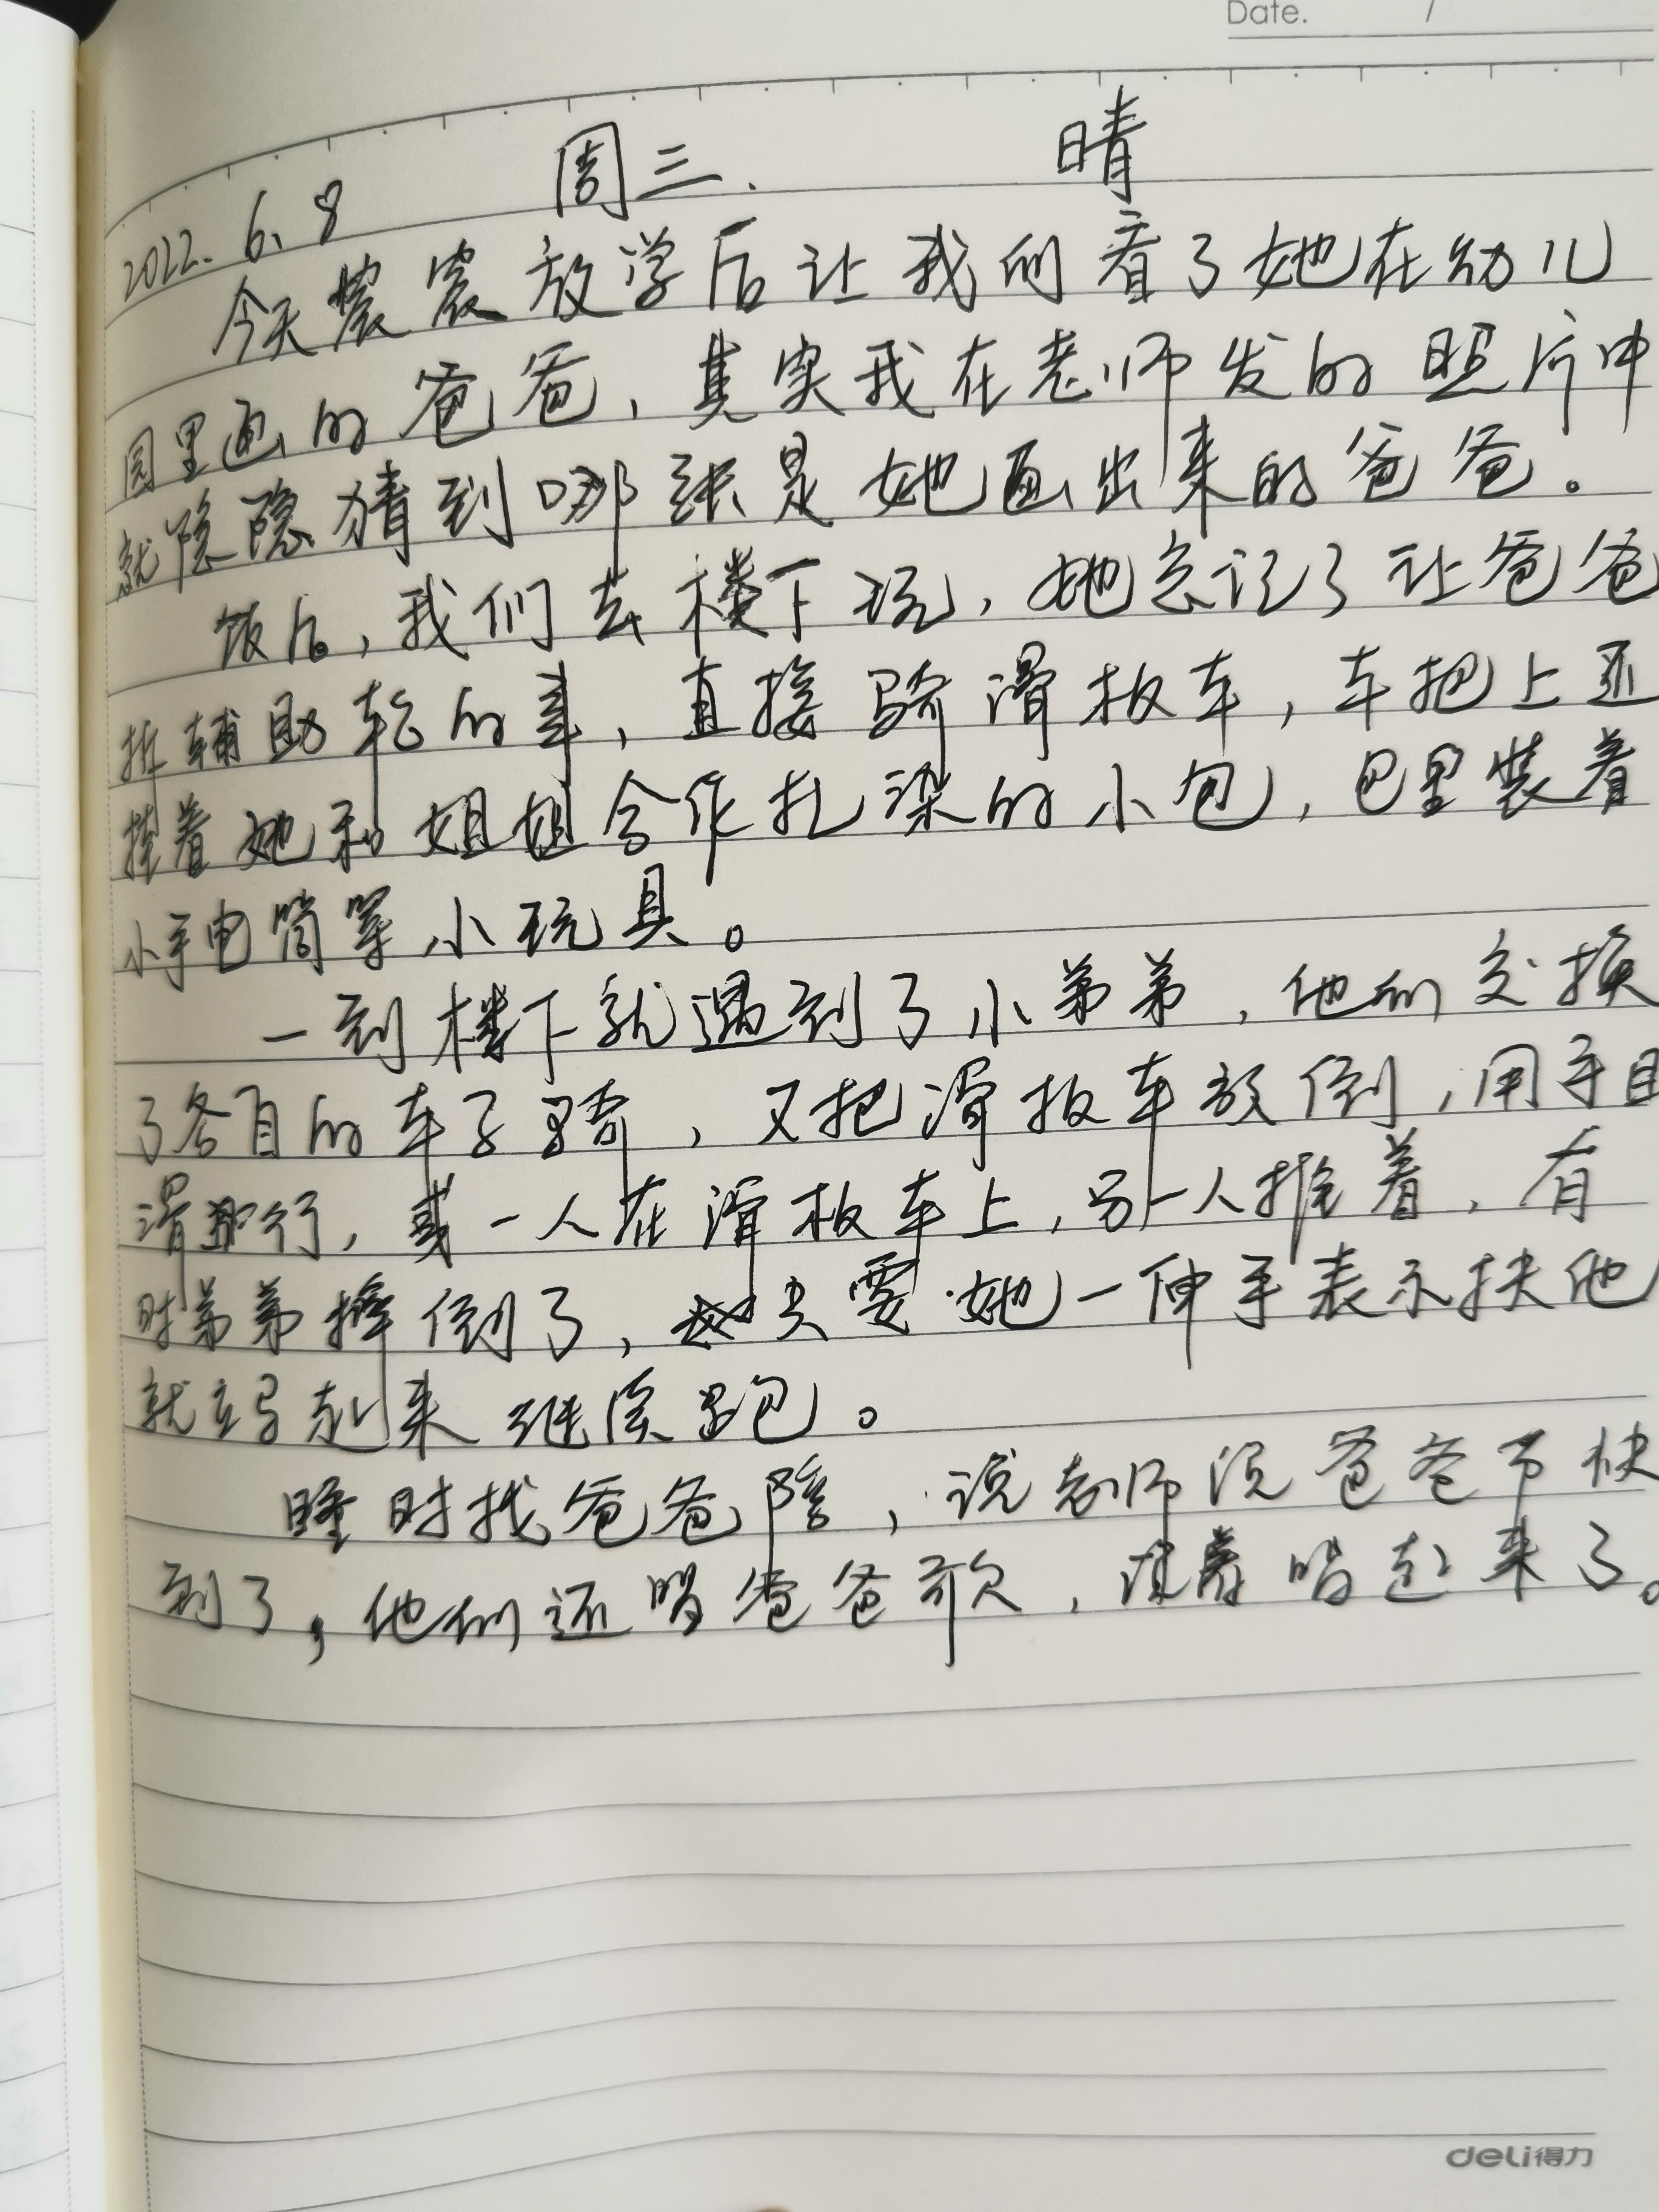 Date. /
周三. 晴
2022. 6. 8
今天震震放学后让我们看了她在幼儿
园里画的爸爸,其实我在老师发的照片中
就隐隐猜到哪张是她画出来的爸爸。
饭后,我们去楼下玩,她忘记了让爸爸
拆辅助轮的事,直接骑滑板车,车把上还
挂着她和姐姐合作扎染的小包,包里装着
小手电筒等小玩具。
一到楼下就遇到了小弟弟,他们交换
了各自的车子骑,又把滑板车放倒,用手
滑行,或一人在滑板车上,另一人推着,有
时弟弟摔倒了,只要她一伸手表示扶他
就立马起来继续跑。
睡时找爸爸陪,说老师说爸爸节快
到了,他们还唱爸爸歌,唱起来了。
deli得力